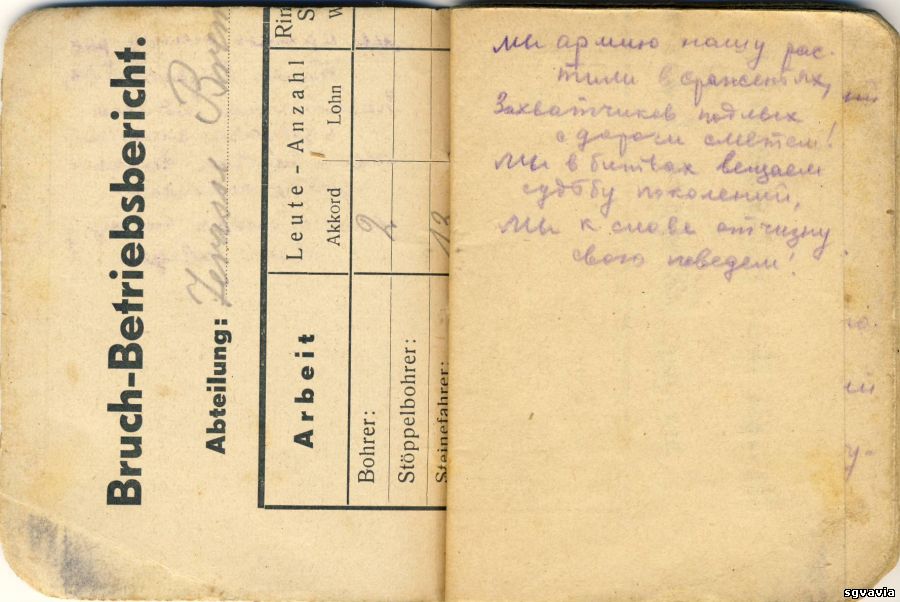 Bruch-Betriebsbericht.
Abteilung:
Arbeit
Leute - Anzahl
Akkord
Lohn
Bohrer:
2
Stöppelbohrer:
Steinefahrer:
12
Мы армию нашу рас-
тили в сраженьях,
Захватчиков подлых
с дороги сметем!
Мы в битвах вещаем
судьбу поколений,
Мы к славе отчизну
свою поведем!
sgvavia